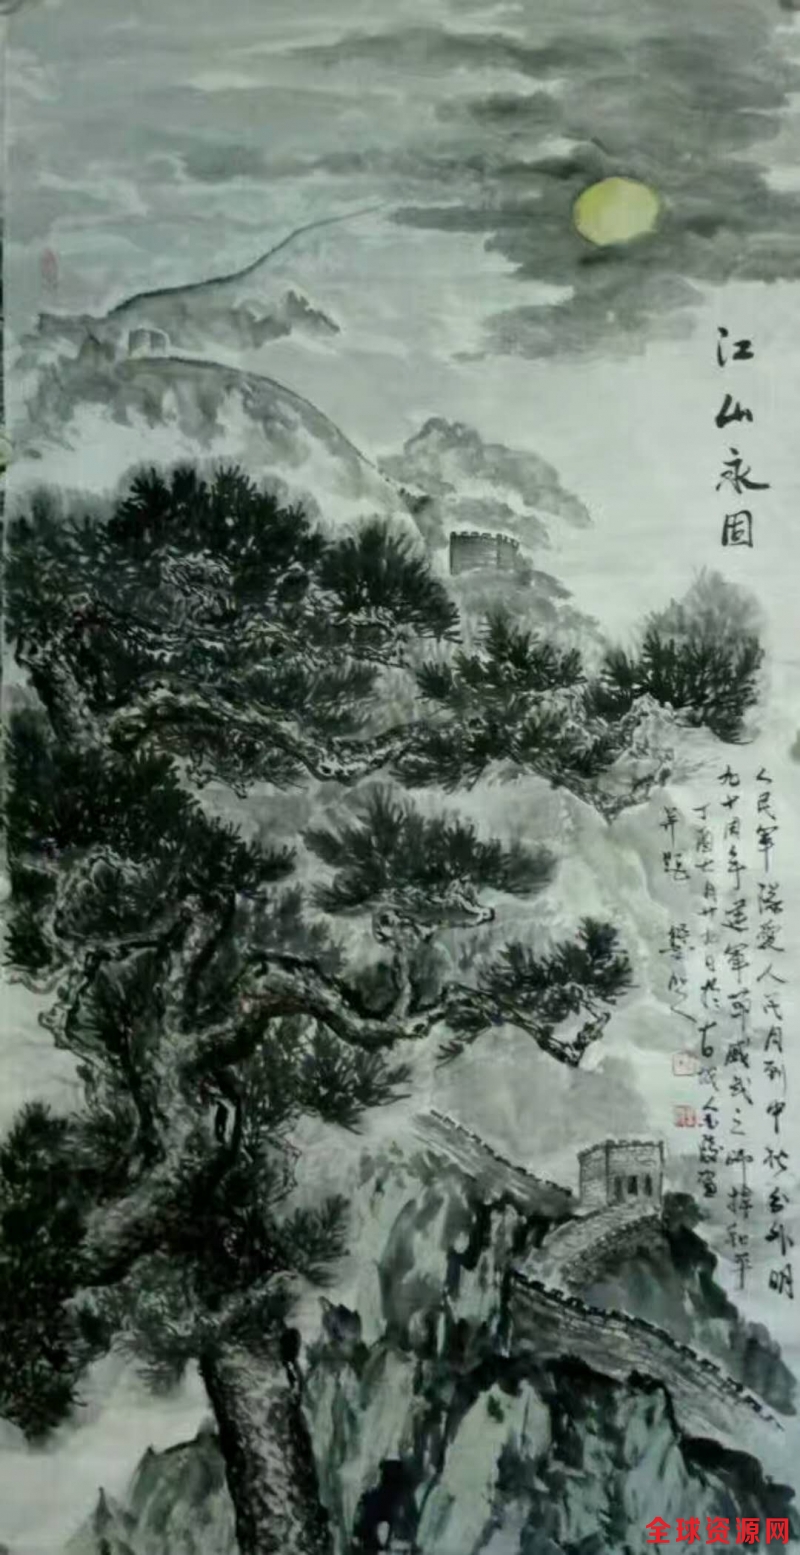 江山永固
人民军隊愛人民月到中秋分外明
九十周年建军节威武之师捍和平
丁酉七月廿九日於古城金陵
并题
全球资源网